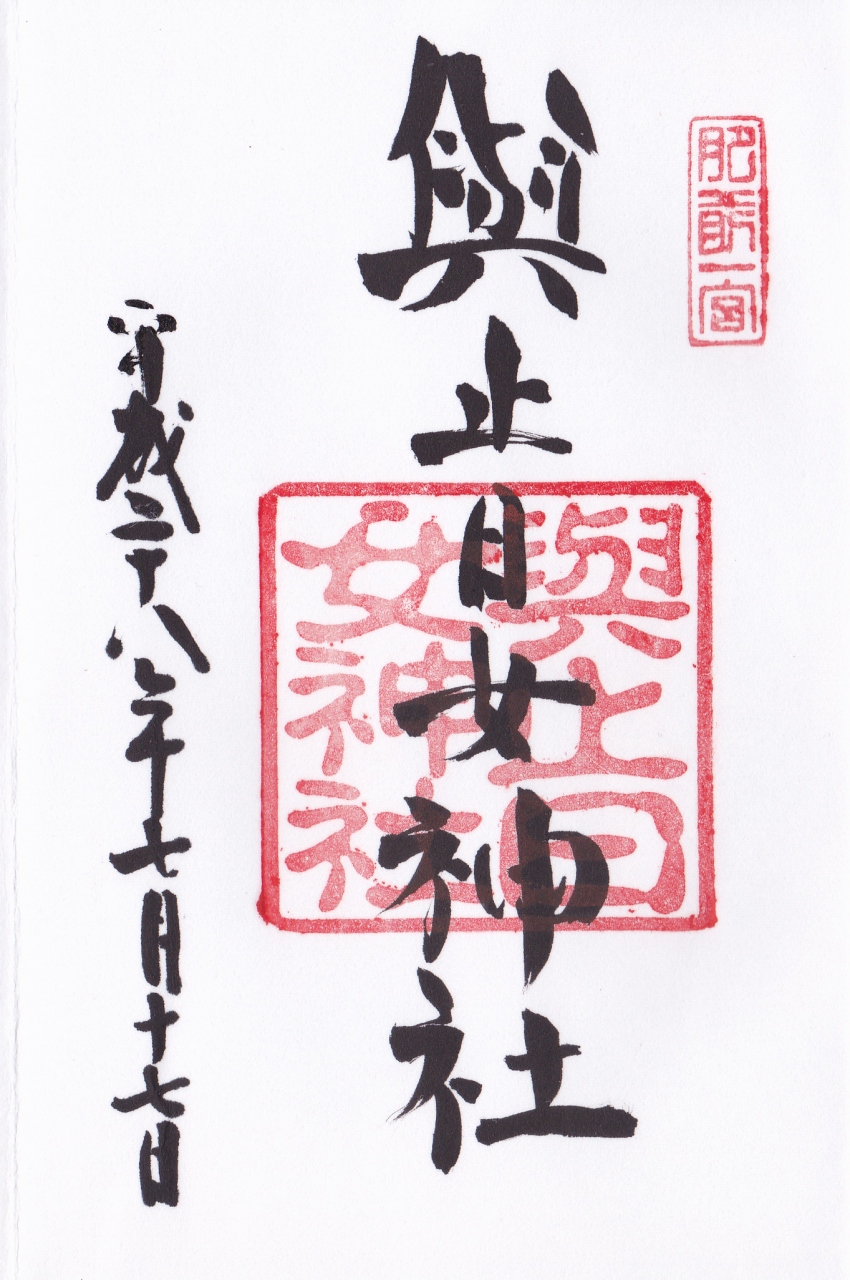 肥前一宮
與止日女神社
與止日女神社
平成二十八年七月十七日